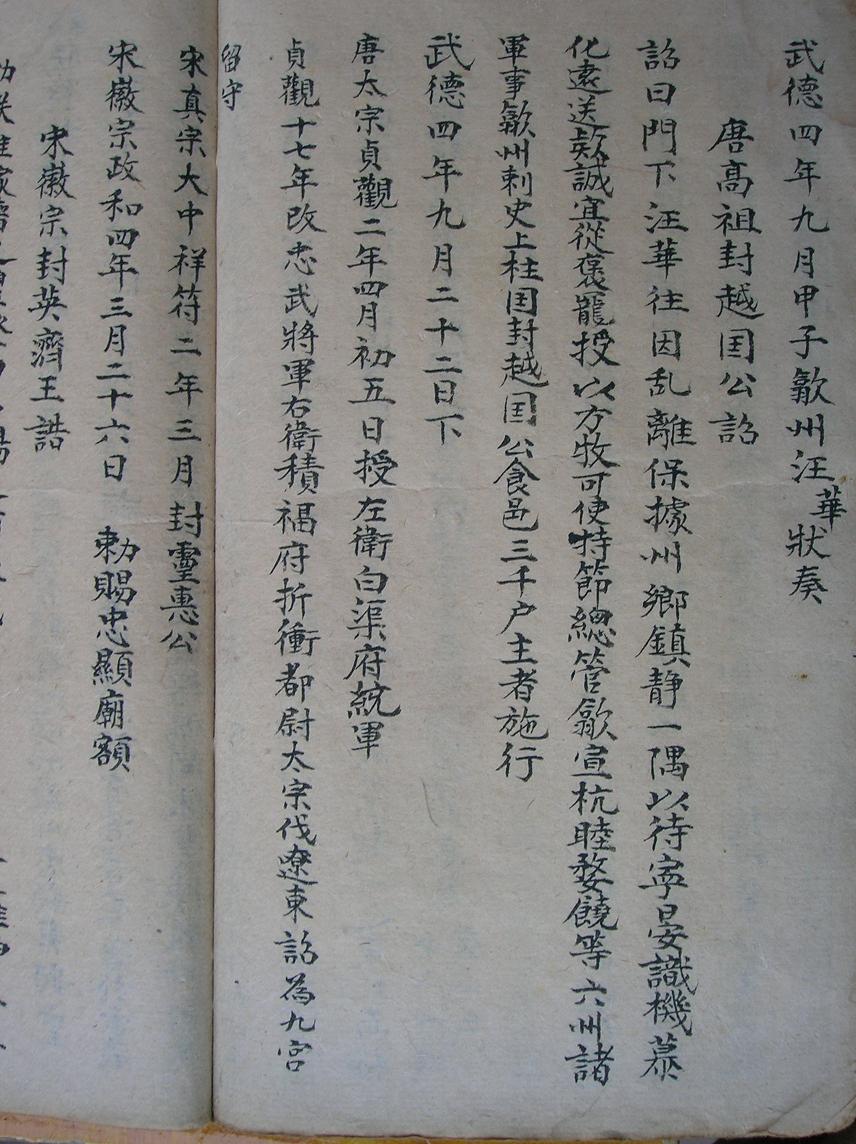 武德四年九月甲子歙州汪華狀奏
唐高祖封越国公詔
詔曰門下汪華往因乱離保據州鄉鎮静一隅以待寧晏識機慕
化遠送款誠宜從褒寵授以方牧可使持節總管歙宣杭睦婺饒等六州諸
軍事歙州刺史上柱国封越国公食邑三千户主者施行
武德四年九月二十二日下
唐太宗貞觀二年四月初五日授左衛白渠府統軍
貞觀十七年改忠武將軍右衛積福府折衝都尉太宗伐遼東詔為九宮
留守
宋真宗大中祥符二年三月封靈惠公
宋徽宗政和四年三月二十六日 勅賜忠顯廟額
宋徽宗封英濟王誥